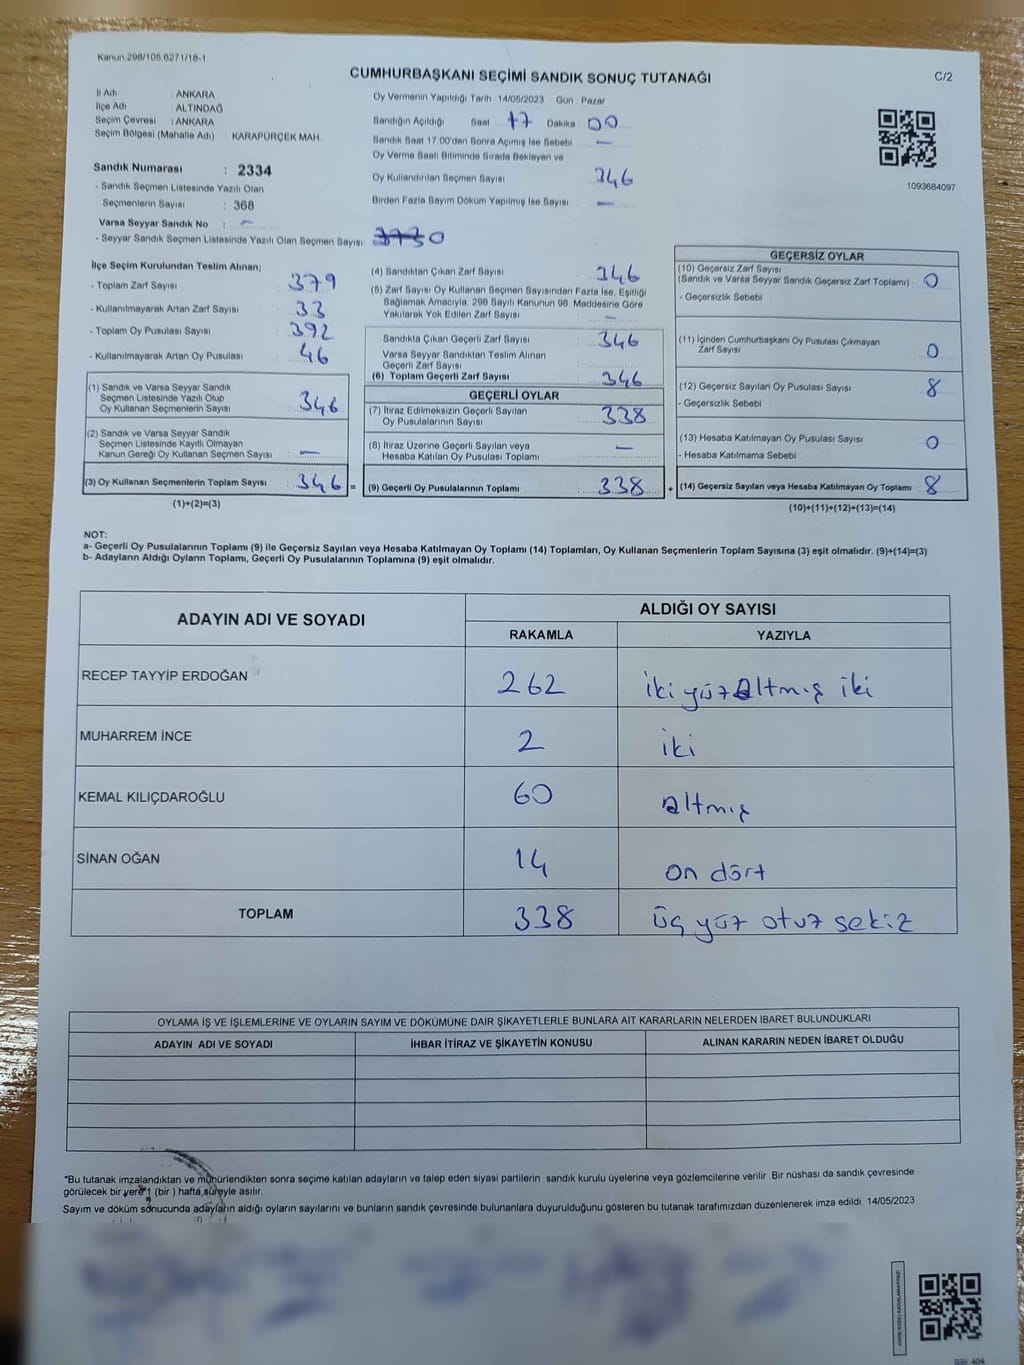 Kanun.298/105.6271/18-1
CUMHURBAŞKANI SEÇİMİ SANDIK SONUÇ TUTANAĞI
C/2
İl Adı : ANKARA
İlçe Adı : ALTINDAĞ
Seçim Çevresi : ANKARA
Seçim Bölgesi (Mahalle Adı) : KARAPÜRÇEK MAH.
Sandık Numarası : 2334
- Sandık Seçmen Listesinde Yazılı Olan
Seçmenlerin Sayısı : 368
Varsa Seyyar Sandık No : -
- Seyyar Sandık Seçmen Listesinde Yazılı Olan Seçmen Sayısı: 0
Oy Vermenin Yapıldığı Tarih : 14/05/2023 Gün : Pazar
Sandığın Açıldığı Saat 17 Dakika : 00
Sandık Saat 17:00'den Sonra Açımış İse Sebebi : —
Oy Verme Saati Bitiminde Sırada Bekleyen ve
Oy Kullandırılan Seçmen Sayısı 346
Birden Fazla Sayım Döküm Yapılmış İse Sayısı : —
1093684097
İlçe Seçim Kurulundan Teslim Alınan;
- Toplam Zarf Sayısı : 379
- Kullanılmayarak Artan Zarf Sayısı : 33
- Toplam Oy Pusulası Sayısı : 392
- Kullanılmayarak Artan Oy Pusulası : 46
(1) Sandık ve Varsa Seyyar Sandık
Seçmen Listesinde Yazılı Olup
Oy Kullanan Seçmenlerin Sayısı : 346
(2) Sandık ve Varsa Seyyar Sandık
Seçmen Listesinde Kayıtlı Olmayan
Kanun Gereği Oy Kullanan Seçmen Sayısı : —
(3) Oy Kullanan Seçmenlerin Toplam Sayısı : 346 =
(1)+(2)=(3)
(4) Sandıktan Çıkan Zarf Sayısı : 346
(5) Zarf Sayısı Oy Kullanan Seçmen Sayısından Fazla İse, Eşitliği
Sağlamak Amacıyla, 298 Sayılı Kanunun 98. Maddesine Göre
Yakılarak Yok Edilen Zarf Sayısı : —
Sandıkta Çıkan Geçerli Zarf Sayısı : 346
Varsa Seyyar Sandıktan Teslim Alınan
Geçerli Zarf Sayısı :
(6) Toplam Geçerli Zarf Sayısı : 346
GEÇERLİ OYLAR
(7) İtiraz Edilmeksizin Geçerli Sayılan
Oy Pusulalarının Sayısı : 338
(8) İtiraz Üzerine Geçerli Sayılan veya
Hesaba Katılan Oy Pusulası Toplamı : —
(9) Geçerli Oy Pusulalarının Toplamı : 338 +
GEÇERSİZ OYLAR
(10) Geçersiz Zarf Sayısı
(Sandık ve Varsa Seyyar Sandık Geçersiz Zarf Toplamı) : 0
- Geçersizlik Sebebi :
(11) İçinden Cumhurbaşkanı Oy Pusulası Çıkmayan
Zarf Sayısı : 0
(12) Geçersiz Sayılan Oy Pusulası Sayısı : 8
- Geçersizlik Sebebi :
(13) Hesaba Katılmayan Oy Pusulası Sayısı : 0
- Hesaba Katılmama Sebebi :
(14) Geçersiz Sayılan veya Hesaba Katılmayan Oy Toplamı : 8
(10)+(11)+(12)+(13)=(14)
NOT:
a- Geçerli Oy Pusulalarının Toplamı (9) ile Geçersiz Sayılan veya Hesaba Katılmayan Oy Toplamı (14) Toplamları, Oy Kullanan Seçmenlerin Toplam Sayısına (3) eşit olmalıdır. (9)+(14)=(3)
b- Adayların Aldığı Oyların Toplamı, Geçerli Oy Pusulalarının Toplamına (9) eşit olmalıdır.
ADAYIN ADI VE SOYADI ALDIĞI OY SAYISI
RAKAMLA YAZIYLA
RECEP TAYYİP ERDOĞAN 262 iki yüz altmış iki
MUHARREM İNCE 2 iki
KEMAL KILIÇDAROĞLU 60 altmış
SİNAN OĞAN 14 on dört
TOPLAM 338 üç yüz otuz sekiz
OYLAMA İŞ VE İŞLEMLERİNE VE OYLARIN SAYIM VE DÖKÜMÜNE DAİR ŞİKAYETLERLE BUNLARA AİT KARARLARIN NELERDEN İBARET BULUNDUKLARI
ADAYIN ADI VE SOYADI İHBAR İTİRAZ VE ŞİKAYETİN KONUSU ALINAN KARARIN NEDEN İBARET OLDUĞU
*Bu tutanak imzalandıktan ve mühürlendikten sonra seçime katılan adayların ve talep eden siyasi partilerin sandık kurulu üyelerine veya gözlemcilerine verilir. Bir nüshası da sandık çevresinde
görülecek bir yere 1 (bir ) hafta süreyle asılır.
Sayım ve döküm sonucunda adayların aldığı oyların sayılarını ve bunların sandık çevresinde bulunanlara duyurulduğunu gösteren bu tutanak tarafımızdan düzenlenerek imza edildi. 14/05/2023